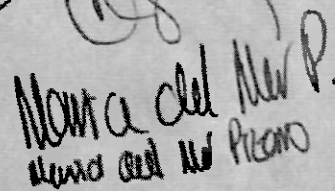 Maria del Mar P.
Maria del Mar Pizarro